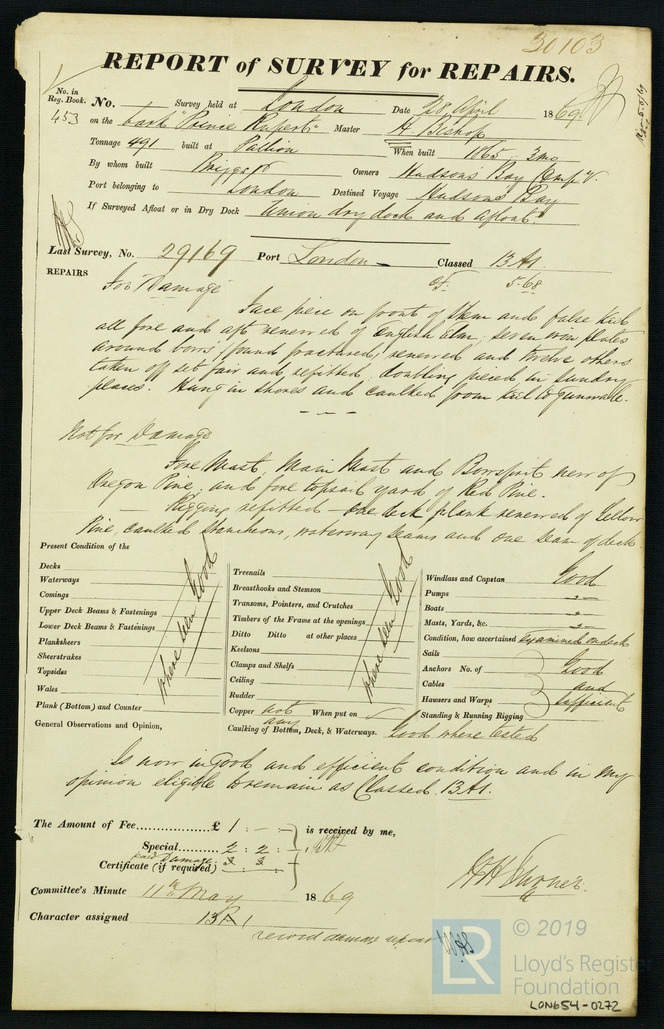 30103
REPORT of SURVEY for REPAIRS.
No. in Reg. Book. 453
No. Survey held at London Date 28 April 1869
on the bark "Prince Rupert" Master H Bishop
Tonnage 491 built at Pallion When built 1865 - 3mo
By whom built Briggs Owners Hudsons Bay Comp'y
Port belonging to London Destined Voyage Hudsons Bay
If Surveyed Afloat or in Dry Dock Union dry dock and afloat
Last Survey, No. 29169 Port London Classed 13A1
REPAIRS 5.68
For Damage
Face piece on front of Stem and false keel
all fore and aft renewed of English Elm; seven iron plates
around bows, found fractured, renewed and twelve others
taken off set fair and refitted, doubling pieced in sundry
places. Hung in shores and caulked from keel to gunwale.
Not for Damage
Fore Mast, Main Mast and Bowsprit new of
Oregon Pine, and fore topsail yard of Red Pine.
— Rigging refitted — one deck plank renewed of Yellow
Pine caulked stancheons, waterway seams and one seam of deck
Present Condition of the
Decks
Waterways
Comings
Upper Deck Beams & Fastenings
Lower Deck Beams & Fastenings
Planksheers
Sheerstrakes
Topsides
Wales
Plank (Bottom) and Counter
where seen Good
General Observations and Opinion,
Treenails
Breasthooks and Stemson
Transoms, Pointers, and Crutches
Timbers of the Frame at the openings
Ditto Ditto at other places
Keelsons
Clamps and Shelfs
Ceiling
Rudder
where seen Good
Copper not any When put on
Caulking of Bottom, Deck, & Waterways. Good where tested
Windlass and Capstan Good
Pumps
Boats
Masts, Yards, &c.
Condition, how ascertained examined on deck
Sails
Anchors No. of Good
Cables and
Hawsers and Warps sufficient
Standing & Running Rigging
Is now in Good and efficient condition and in my
opinion eligible to remain as Classed. 13A1.
The Amount of Fee.................. £ 1 : - : - is received by me,
Special........ 2 : 2 :
Certificate (if required)
Committee's Minute 11th May 1869
Character assigned 13A1
record damage repairs
© 2019
LR
Lloyd's Register
Foundation
LON654-0272